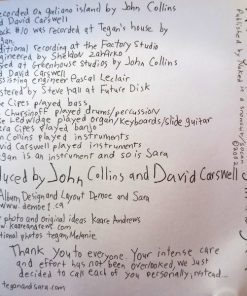 recorded on galiano island by John Collins
David Carswell
#10 was recorded at Tegan's house by
recording at the Factory Studio
engineered by Sheldon Zaharko
at Greenhouse studios by John Collins
David Carswell
engineer Pascal Leclair
by Steve Hall at Future Disk
Cipes played bass
played drums/percussion/
played organ/keyboards/slide guitar
Cipes played banjo
Collins played instruments
Carswell played instruments
is an instrument and so is Sara
by John Collins and David Carswell
Album Design and Layout Demoe and Sara
www.demoe1.ca
photo and original ideas Kaare Andrews
www.kaareandrews.com
photos tegan, Melanie
Thank You to everyone. Your intense care
and effort has not been overlooked, we Just
decided to call each of you personally, instead...
teganandsara.com
Published by Naked in a